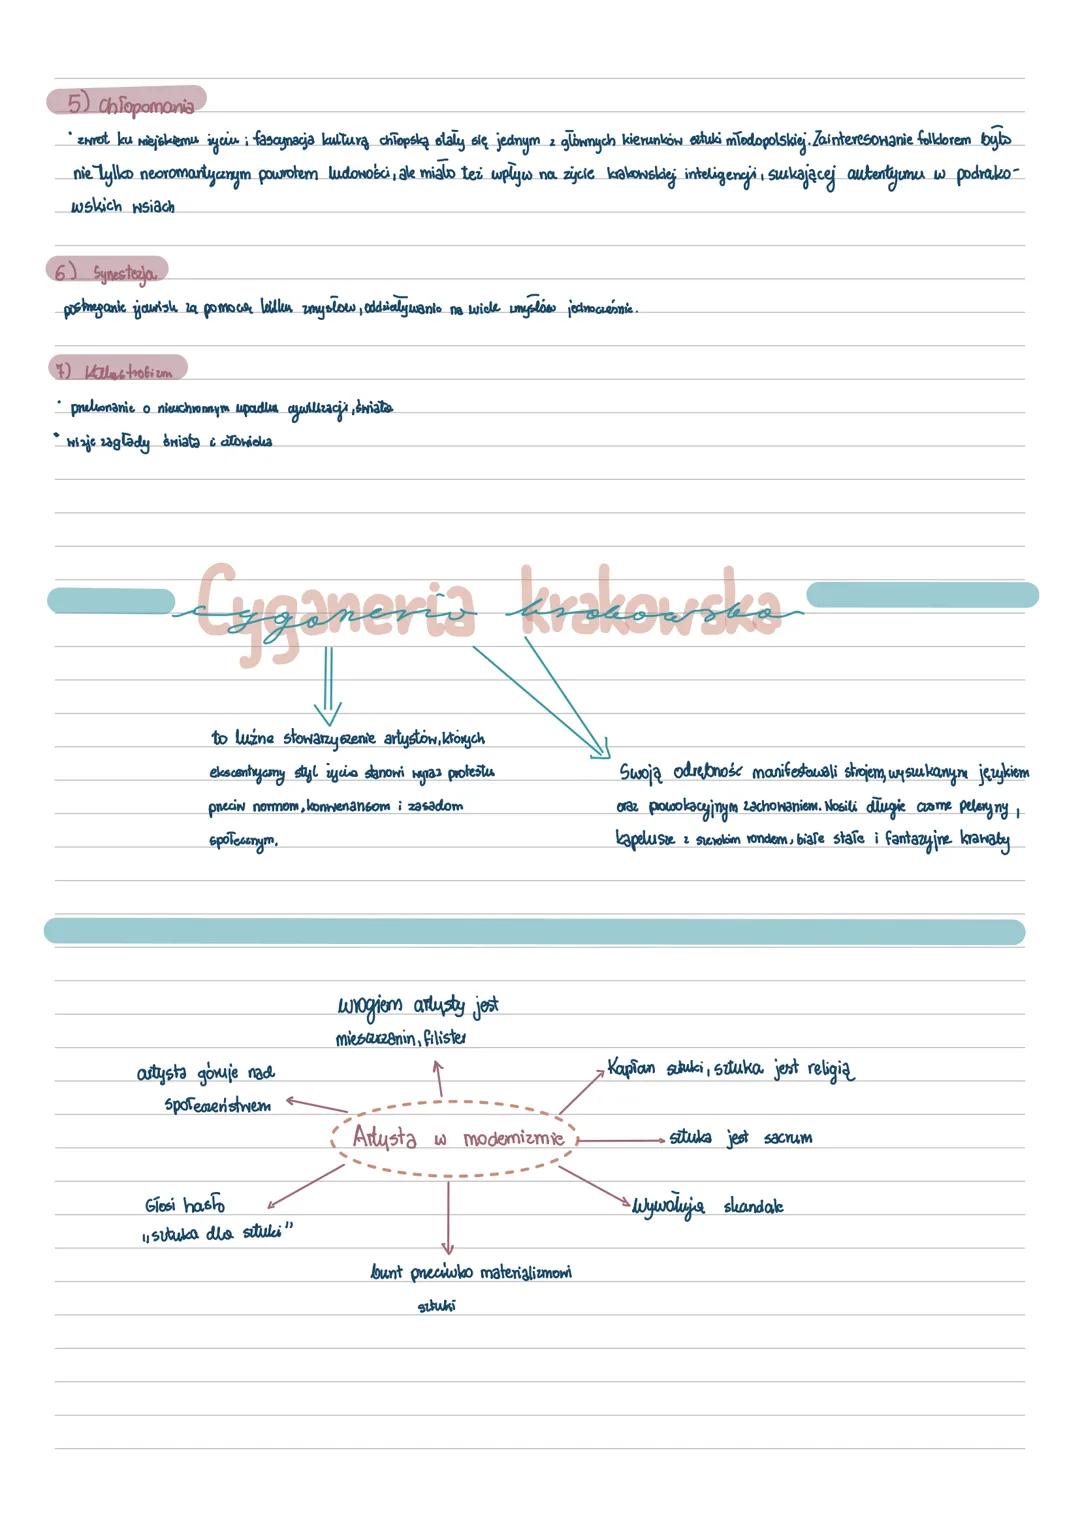 5) Chłopomania
• zwrot ku wiejskiemu życiu i fascynacja kulturą chłopską stały się jednym z głównych kierunków sztuki młodopolskiej. Zainteresowanie folklorem było
nie tylko neoromantycznym powrotem ludowości, ale miało też wpływ na życie krakowskiej inteligencji, szukającej autentyzmu w podrako-
wskich wsiach
6) Synestezja
postrzeganie zjawisk za pomocą kilku zmysłów, oddziaływanie na wiele zmysłów jednocześnie.
7) Katastrofizm
• przekonanie o nieuchronnym upadku cywilizacji, świata
• wizje zagłady świata i człowieka
Cyganeria krakowska
cyganeria krakowska
to luźne stowarzyszenie artystów, których
ekscentryczny styl życia stanowi wyraz protestu
przeciw normom, konwenansom i zasadom
społecznym.
Swoją odrębność manifestowali strojem, wyszukanym językiem
oraz prowokacyjnym zachowaniem. Nosili długie czarne peleryny,
kapelusze z szerokim rondem, białe szale i fantazyjne krawaty
wrogiem artysty jest
mieszczanin, filister
artysta góruje nad
społeczeństwem
Kapłan sztuki, sztuka jest religią
Artysta w modernizmie
sztuka jest sacrum
Głosi hasło
„sztuka dla sztuki"
Wywołują skandale
bunt przeciwko materializmowi
sztuki